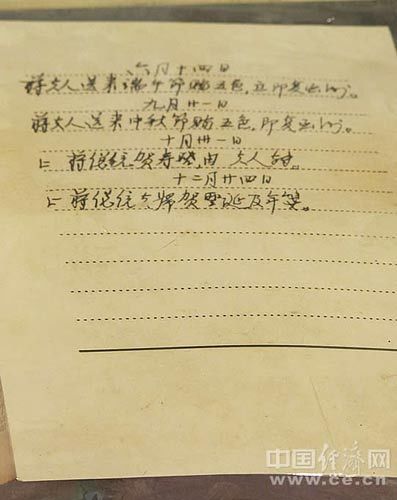 六月十四日
蒋夫人送来端午节赐五色，立即复函
九月廿一日
蒋夫人送来中秋节赐五色，即复函
十月卅一日
上 蒋总统贺寿 由 夫人
十二月廿四日
上 蒋总统 贺圣诞及年
中国经济网
www.ce.cn